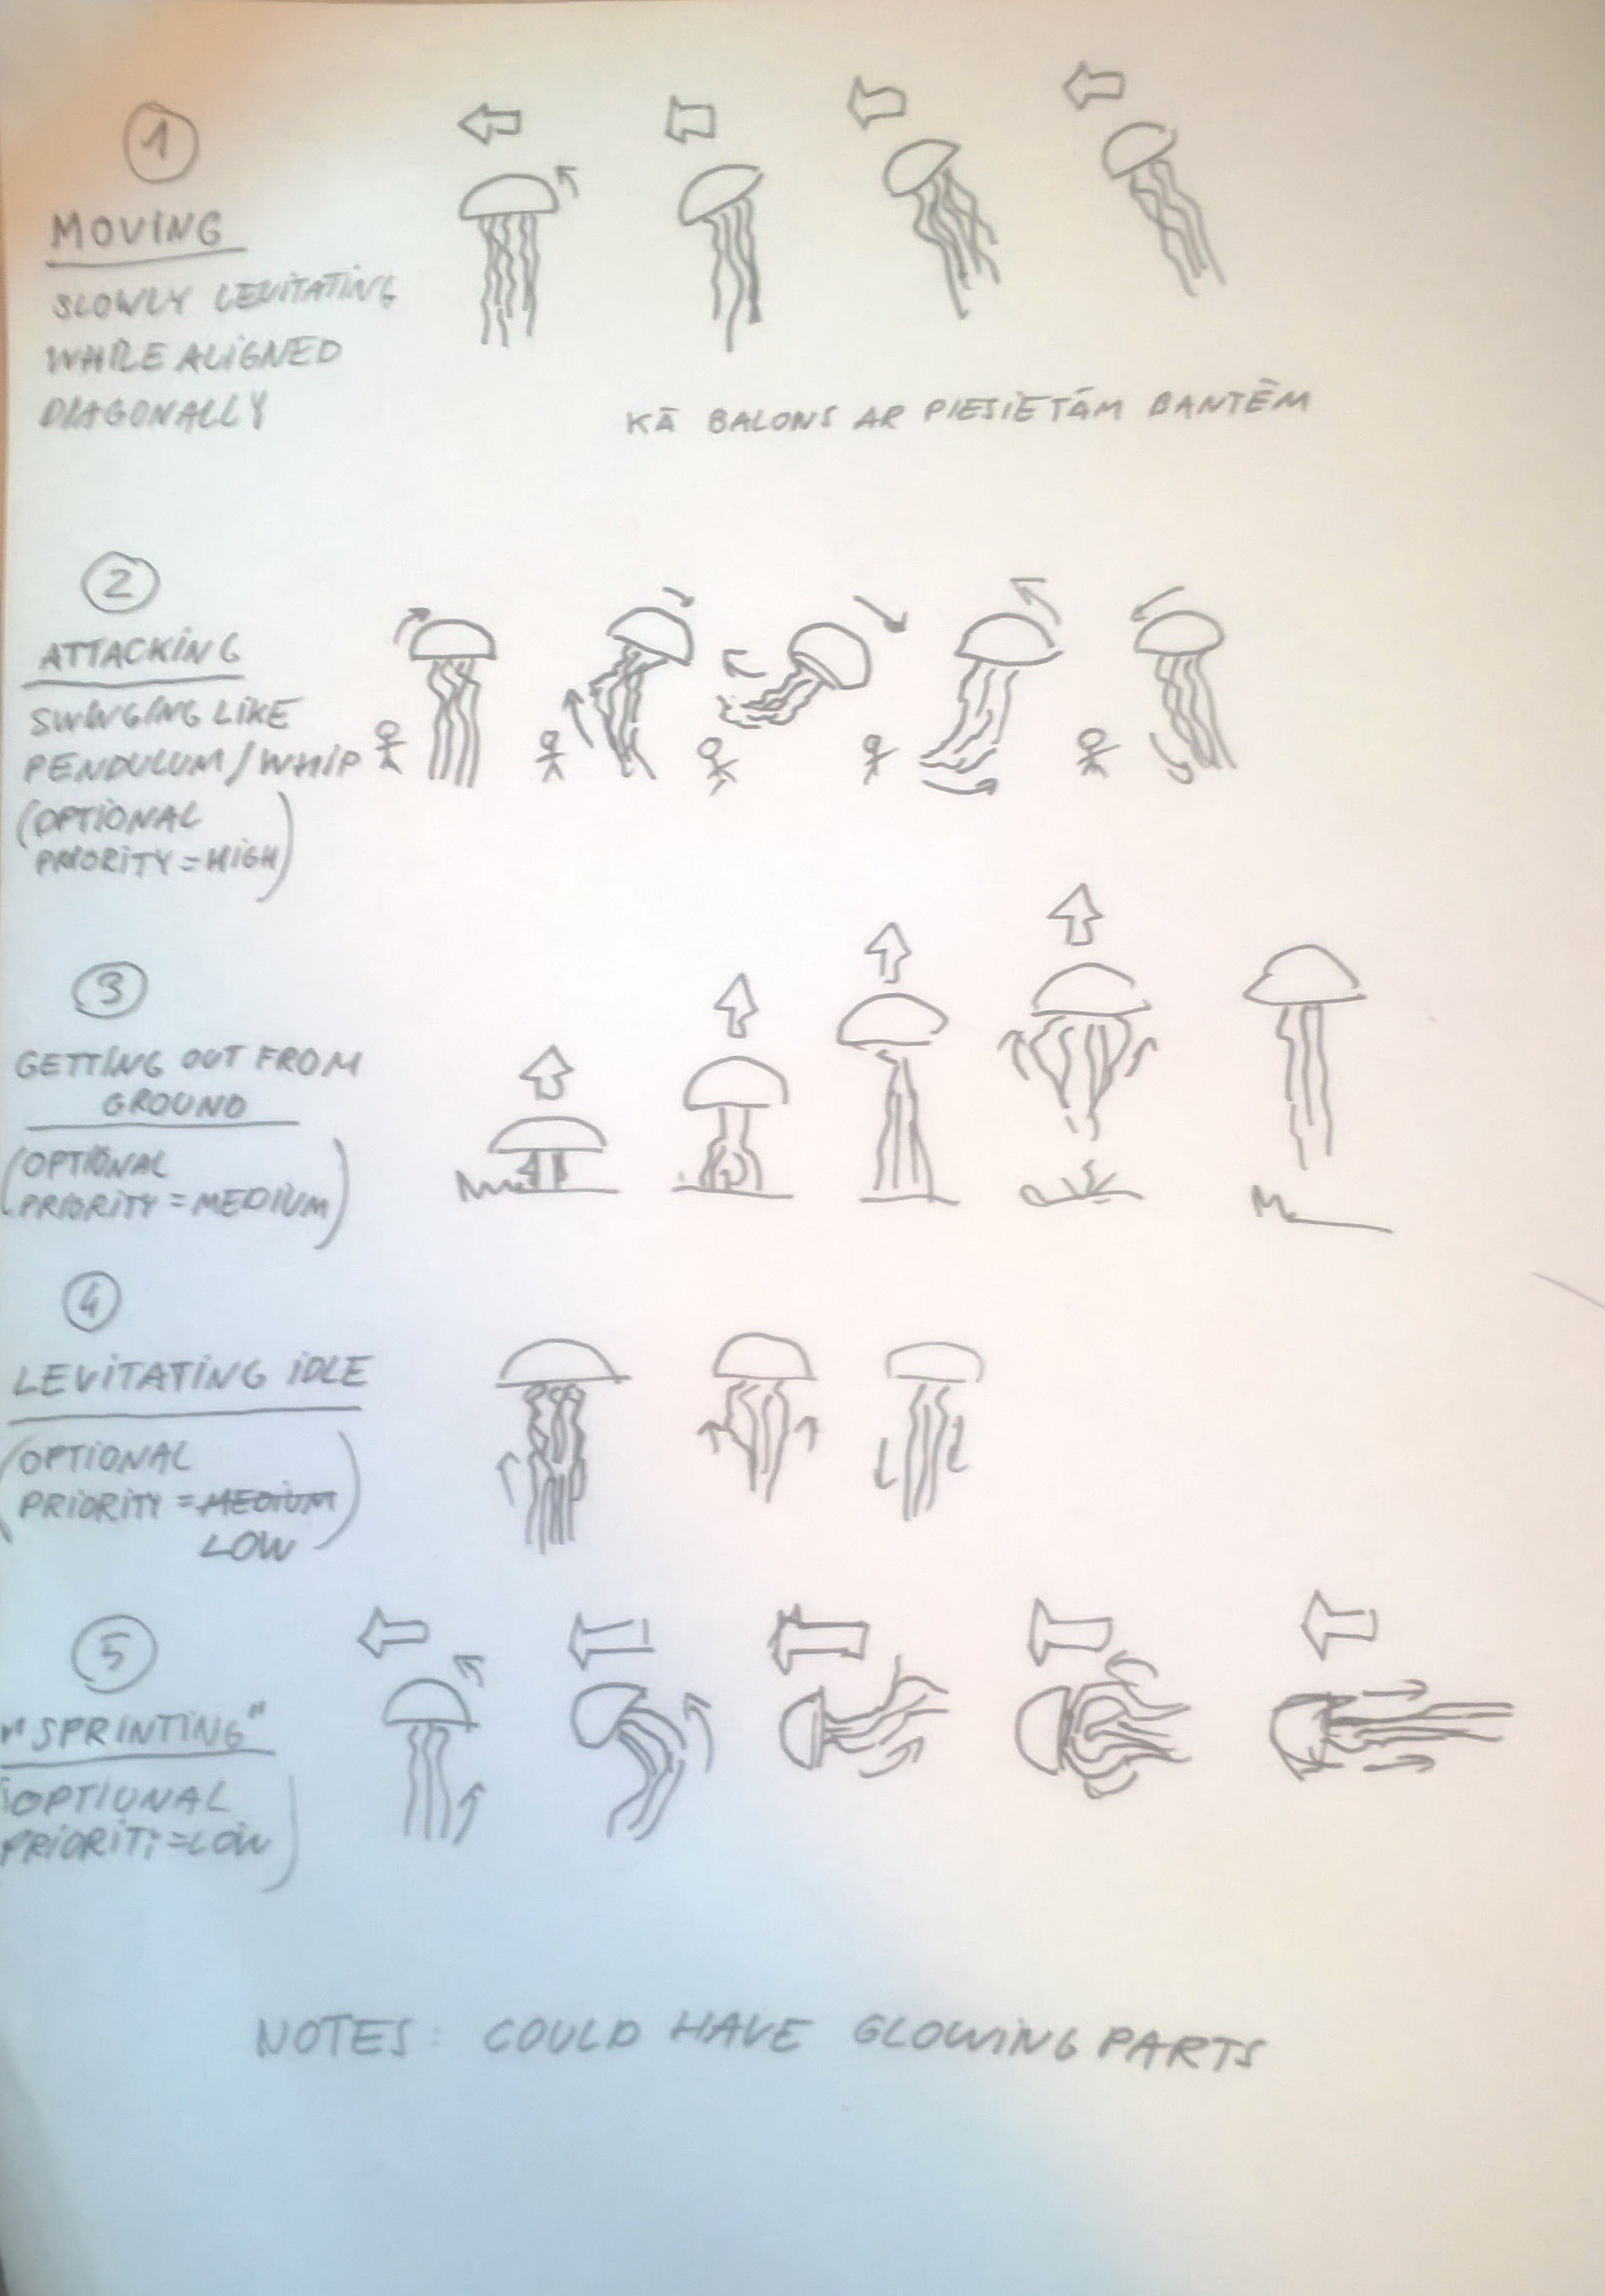 1
MOVING
SLOWLY LEVITATING
WHILE ALIGNED
DIAGONALLY
KĀ BALONS AR PIESIETĀM BANTĒM
2
ATTACKING
SWINGING LIKE
PENDULUM/WHIP
(OPTIONAL
PRIORITY=HIGH)
3
GETTING OUT FROM
GROUND
(OPTIONAL
PRIORITY=MEDIUM)
4
LEVITATING IDLE
(OPTIONAL
PRIORITY=MEDIUM
LOW)
5
"SPRINTING"
(OPTIONAL
PRIORITI=LOW)
NOTES: COULD HAVE GLOWING PARTS